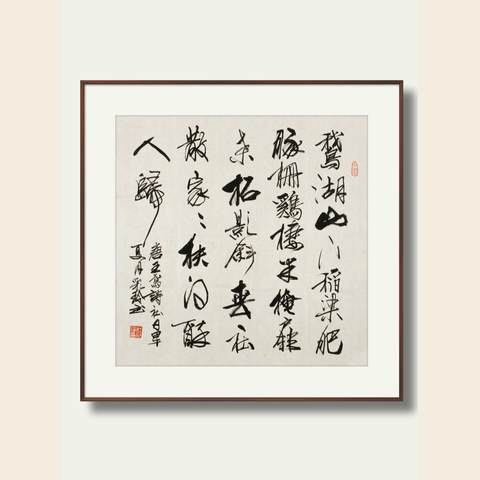 鵝湖山下稻粱肥
豚柵鷄棲半掩扉
桑柘影斜春社
散家々扶得醉
人歸
唐王駕詩社日
夏月